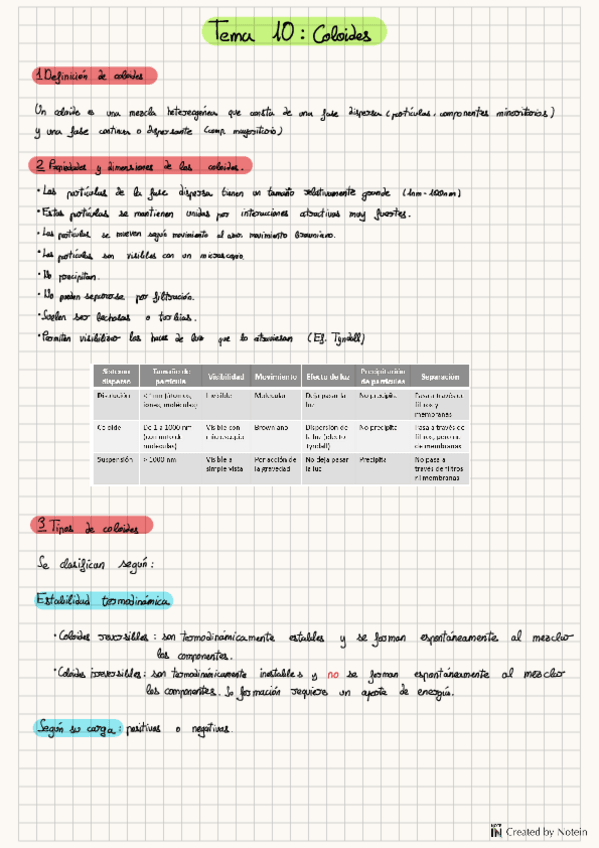 Tema 10: Coloides
1. Definición de coloides
Un coloide es una mezcla heterogénea que consta de una fase dispersa (partículas, componentes minoritarios)
y una fase continua o dispersante (comp. mayoritario)
2. Propiedades y dimensiones de los coloides.
· Las partículas de la fase dispersa tienen un tamaño relativamente grande (1nm - 100nm)
· Estas partículas se mantienen unidas por interacciones atractivas muy fuertes.
· Las partículas se mueven según movimiento al azar, movimiento browniano.
· Las partículas son visibles con un microscopio.
· No precipitan.
· No pueden separarse por filtración.
· Suelen ser lechosas o turbias.
· Permiten visibilizar los haces de luz que lo atraviesan (Ef. Tyndall)
Sistema disperso Tamaño de partícula Visibilidad Movimiento Efecto de luz Precipitación de partículas Separación
Disolución < 1 nm (átomos, iones, moléculas) Invisible Molecular Deja pasar la luz No precipita Pasa a través de filtros y membranas
Coloide De 1 a 1000 nm (conjunto de moléculas) Visible con microscopio Browniano Dispersión de la luz (efecto Tyndall) No precipita Pasa a través de filtros, pero no de membranas
Suspensión > 1000 nm Visible a simple vista Por acción de la gravedad No deja pasar la luz Precipita No pasa a través de filtros ni membranas
3. Tipos de coloides
Se clasifican según:
Estabilidad termodinámica
· Coloides reversibles: son termodinámicamente estables y se forman espontáneamente al mezclar
los componentes.
· Coloides irreversibles: son termodinámicamente inestables y no se forman espontáneamente al mezclar
los componentes. Su formación requiere un aporte de energía.
Según su carga: positivas o negativas.
NOTE IN Created by Notein